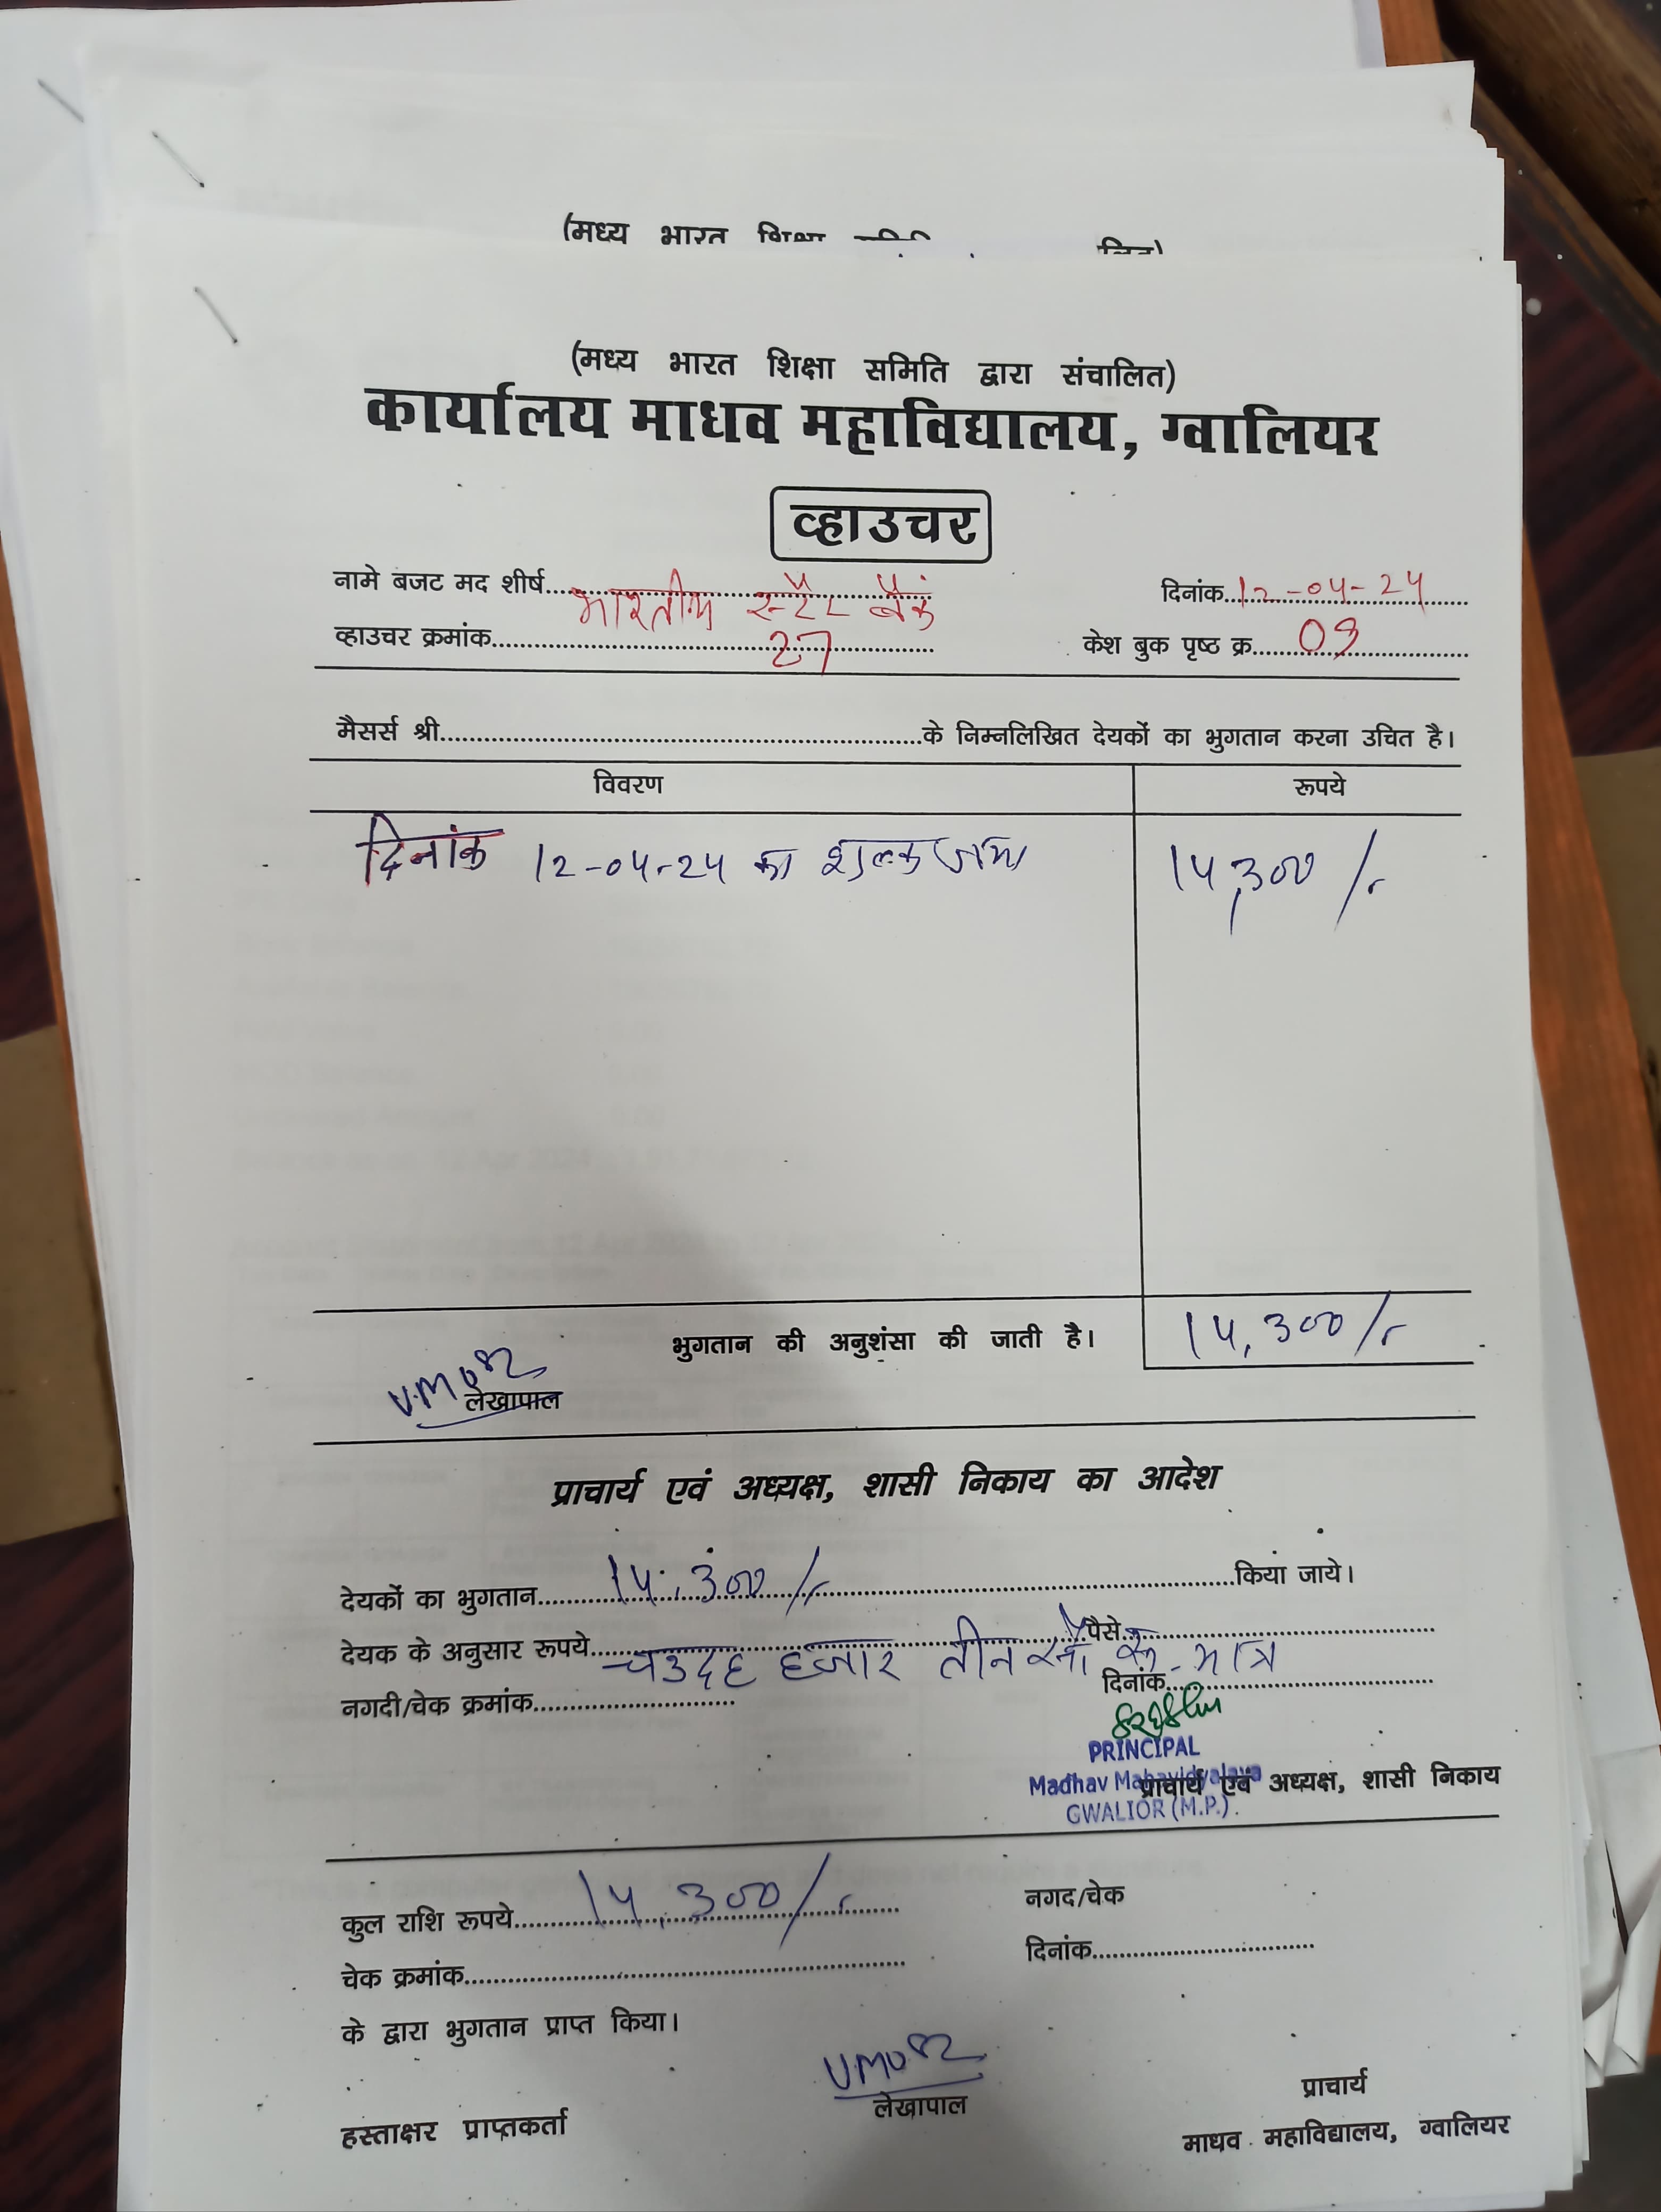 (मध्य भारत
(मध्य भारत शिक्षा समिति द्वारा संचालित)
कार्यालय माधव महाविद्यालय, ग्वालियर
व्हाउचर
नामे बजट मद शीर्ष.....भारतीय स्टैट बैंक दिनांक..12-04-24
व्हाउचर क्रमांक.....27 केश बुक पृष्ठ क्र.....09
मैसर्स श्री.....के निम्नलिखित देयकों का भुगतान करना उचित है।
विवरण रूपये
दिनांक 12-04-24 का शुल्क जमा 14,300/-
भुगतान की अनुशंसा की जाती है। 14,300/-
लेखापाल
प्राचार्य एवं अध्यक्ष, शासी निकाय का आदेश
देयकों का भुगतान.....14,300/-.....किया जाये।
देयक के अनुसार रूपये.....पैसे.....
चउदह हजार तीन सौ रू. मात्र
नगदी/चेक क्रमांक..... दिनांक.....
PRINCIPAL
Madhav Mahavidyalaya
प्राचार्य एवं अध्यक्ष, शासी निकाय
GWALIOR (M.P.)
कुल राशि रूपये.....14,300/- नगद/चेक
चेक क्रमांक..... दिनांक.....
के द्वारा भुगतान प्राप्त किया।
हस्ताक्षर प्राप्तकर्ता लेखापाल प्राचार्य
माधव महाविद्यालय, ग्वालियर